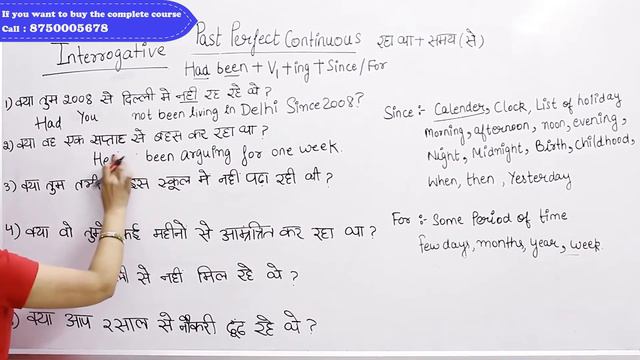 If you want to buy the complete course
Call : 8750005678
Interrogative Past Perfect Continuous रहा था + समय (से)
Had been + V1 + ing + Since/For
1) क्या तुम 2008 से दिल्ली मे नही रह रहे थे ?
Had You not been living in Delhi Since 2008?
2) क्या वह एक सप्ताह से बहस कर रहा था ?
been arguing for one week.
3) क्या तुम इस स्कूल मे नही पढ़ा रही थी ?
4) क्या वो तुम्हे कई महीनो से आमंत्रित कर रहा था ?
से नही मिल रहे थे ?
क्या आप २साल से नौकरी ढूढ रहे थे ?
Since :- Calender, Clock, List of holiday
morning, afternoon, noon, evening,
Night, Midnight, Birth, Childhood,
When, then, Yesterday
For :- Some Period of time
few days, months, year, week.